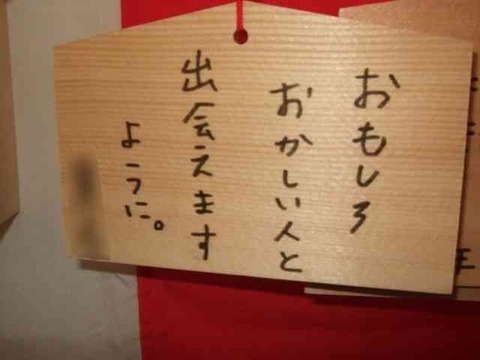 おもしろ
おかしい人と
出会えます
ように。